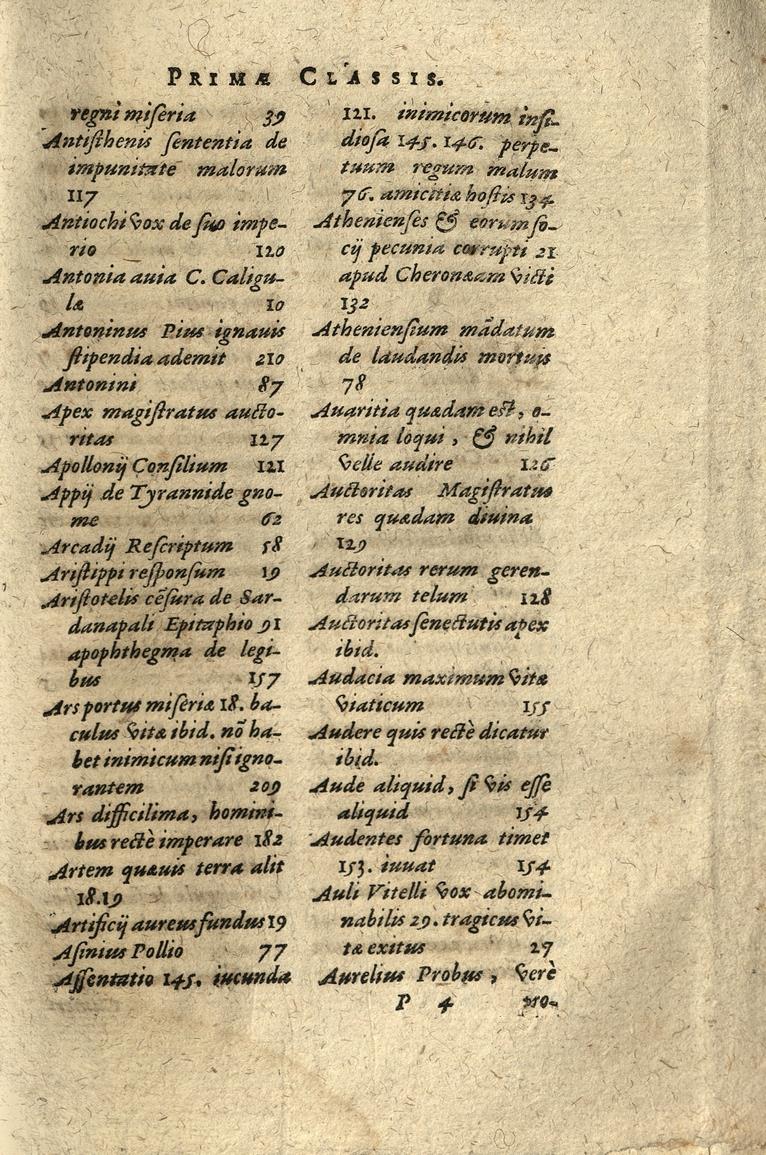 PRIMÆ CLASSIS.
regni miseria 39
Antisthenis sententia de
impunitate malorum
117
Antiochi vox de suo impe-
rio 120
Antonia auia C. Caligu-
læ 10
Antoninus Pius ignauis
stipendia ademit 210
Antonini 87
Apex magistratus aucto-
ritas 127
Apollonij Consilium 121
Appij de Tyrannide gno-
me 62
Arcadij Rescriptum 58
Aristippi responsum 19
Aristotelis cēsura de Sar-
danapali Epitaphio 91
apophthegma de legi-
bus 157
Ars portus miseriæ 18. ba-
culus vitæ ibid. nō ha-
bet inimicum nisi igno-
rantem 209
Ars difficilima, homini-
bus rectè imperare 182
Artem quæuis terra alit
18.19
Artificij aureus fundus 19
Asinius Pollio 77
Assentatio 145. iucunda
121. inimicorum insi-
diosa 145. 146. perpe-
tuum regum malum
76. amicitiæ hostis 134
Athenienses & eorum so-
cij pecunia corrupti 21
apud Cheronæam victi
132
Atheniensium mādatum
de laudandis mortuis
78
Auaritia quædam est, o-
mnia loqui, & nihil
velle audire 126
Auctoritas Magistratus
res quædam diuina
129
Auctoritas rerum geren-
darum telum 128
Auctoritas senectutis apex
ibid.
Audacia maximum vitæ
viaticum 155
Audere quis rectè dicatur
ibid.
Aude aliquid, si vis esse
aliquid 154
Audentes fortuna timet
153. iuuat 154
Auli Vitelli vox abomi-
nabilis 29. tragicus vi-
tæ exitus 27
Aurelius Probus, verè
P 4 pro-